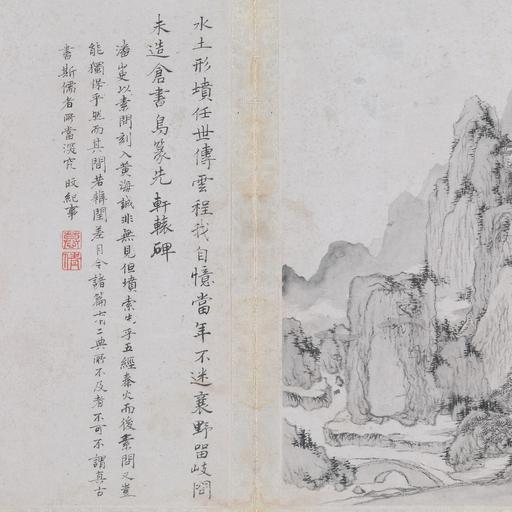 水土形墳任世傳雲程我自憶當年不迷襄野畱岐閣
未造倉書鳥篆先軒轅碑
潘史以素問刻入黃海誠非無見但墳索先乎五經秦火而後素問又豈
能獨保乎然而其間若辯閏差月令諸篇六十二典所不及者不可不謂真古
書斯儒者所當深究 旼紀事